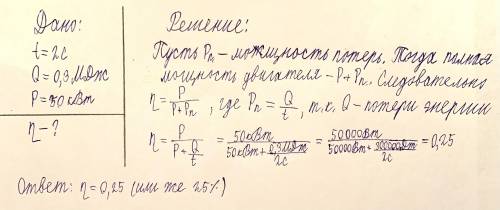 Дано:
t = 2с
Q = 0,3 МДж
P = 50 кВт
η - ?
Решение:
Пусть Pп – можщность потерь. Тогда полная
мощность двигателя – P+Pп. Следовательно
η = P/(P+Pп), где Pп = Q/t, т.к. Q - потери энергии
η = P/(P+Q/t) = 50кВт/(50кВт+0,3МДж/2с) = 50000Вт/(50000Вт+300000Дж/2с) = 0,25
Ответ: η = 0,25 (или же 25%)